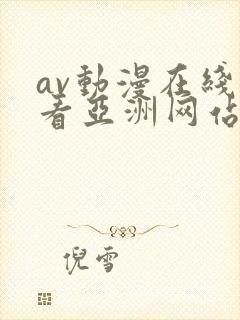 av動漫在綫
看亞洲网佔
倪雪